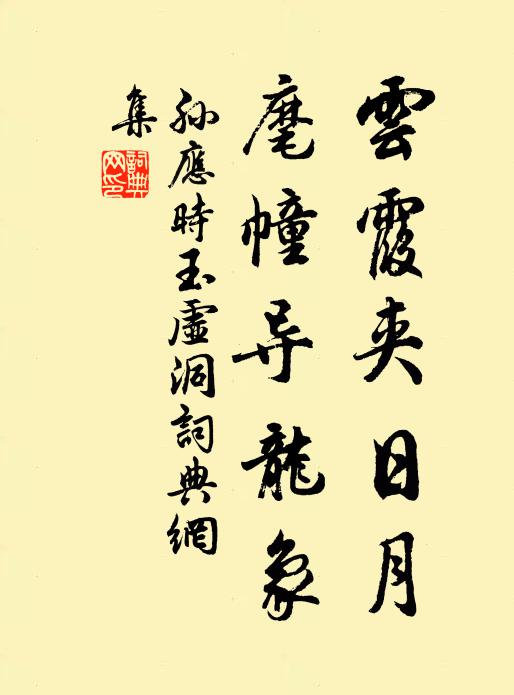 雲霞夾日月
麾幢导龍象
孙應時玉虛洞詞典網
集
詞典
网印